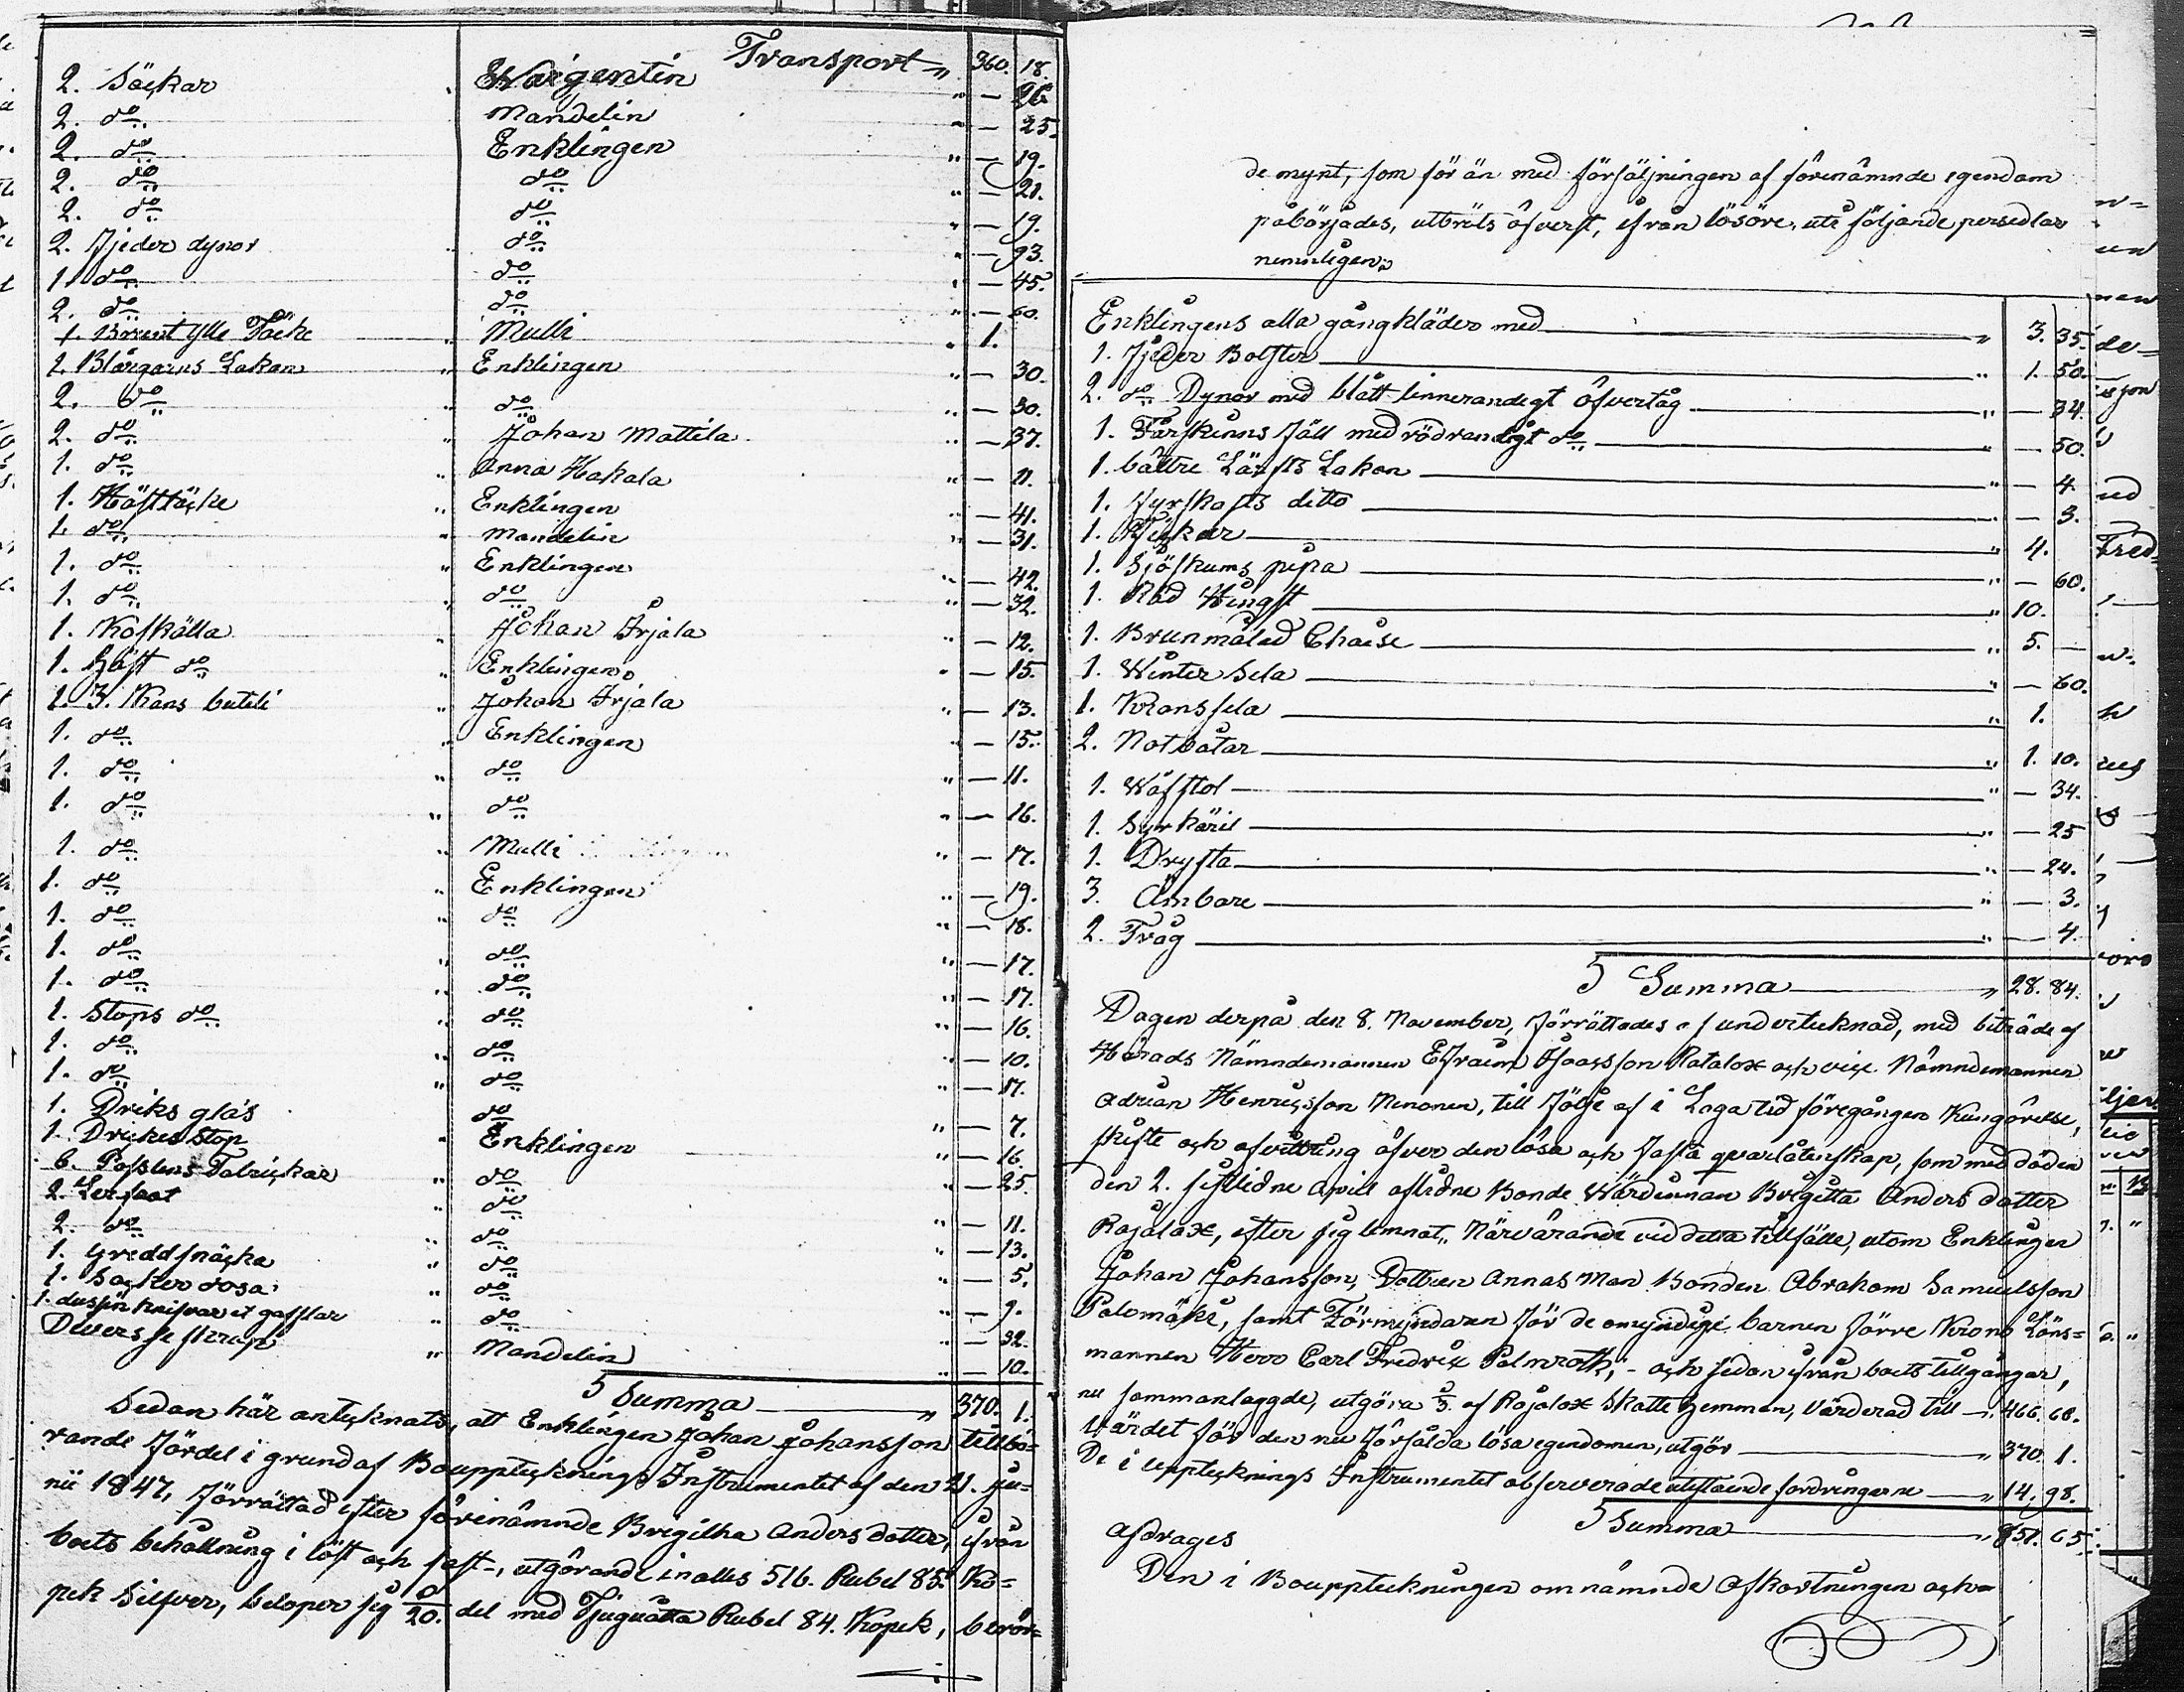 Transport „ 360. 18.
2. Säckar „ Wargentin „ — 26
2. do „ Mandelin „ — 25.
2. do Enklingen „ — 19.
2. do do „ — 21.
2. do do „ — 19.
2. Fjeder dynor „ do „ — 93.
1. do do „ — 45.
2. do do „ — 60.
1. Brunt Ylle Täcke „ Mulli „ 1.
2. Blårgarns Lakan „ Enklingen „ — 30.
2. do „ do „ — 30.
2. do „ Johan Mattila „ — 37.
1. do „ Anna Hakala „ — 11.
1. Hästtäcke „ Enklingen „ — 41.
1. do „ Mandelin „ — 31.
1. do „ Enklingen „ — 42.
1. do „ do „ — 32.
1. Koskälla „ Johan Irjala „ — 12.
1. Häst do „ Enklingen „ — 15.
1. 3. Kans butell „ Johan Irjala „ — 13.
1. do „ Enklingen „ — 15.
1. do „ do „ — 11.
1. do „ do „ — 16.
1. do „ Mulli „ — 17.
1. do „ Enklingen „ — 19.
1. do „ do „ — 18.
1. do „ do „ — 17.
1. do „ do „ — 17.
1. Stops do „ do „ — 16.
1. do „ do „ — 10.
1. do „ do „ — 17.
1. Driks glas do „ — 7.
1. Drickes Stop „ Enklingen „ — 16.
6. Posslens Talrickar „ do „ — 25.
2. Lerfaat „ do „ — 11.
2. do „ do „ — 13.
1. Greddsnäcka „ do „ — 5.
1. Sacker dosa „ do „ — 9.
1. dussin Knifvar et gafflar „ do „ — 32.
Diverse skrap „ Mandelin „ — 10.
Summa „ 370. 1.
Sedan här antecknats, att Enklingen Johan Johansson tillhö=
rande Fördel i grund af Bouppteckings Instrumentet af den 21. Ju=
nii 1847, förrättad efter förenämnde Brigitha Andersdotter, ifrån
boets behållning i löst och fast, utgörande inalles 516. Rubel 85. Ko=
pek Silfver, beloper sig 1/20. del med Tjuguåtta Rubel 84. Kopek, berör=
de mynt, som för än med försäljningen af förenämnde egendom
påbörjades, utbröts öfverst, ifrån lösöre, uti följande persedlar
nemnligen:
Enklingens alla gångkläder med „ 3. 35.
1. Fjeder Bolster „ 1. 50.
2. do Dynor med blått linnerandigt Öfvertåg „ — 34.
1. Fårskinns fäll med rödrandigt do „ — 50.
1. bättre Lärfts Lakan „ — 4.
1. Fyrskafts ditto „ — 3.
1. „ 4.
1. Sjöskums pipa „ — 60.
1. Röd Hingst „ 10.
1. Brunmålad Chaise „ 5. —
1. Winter Sela „ — 60.
1. Kranssela „ 1.
2. Notbåtar „ 1. 10.
1. Wäfstol „ — 34.
1. Syrkäril „ — 25
1. Drysta „ — 24.
3. Ämbare „ — 3.
2. Tråg „ — 4.
Summa „ 28. 84.
Dagen derpå den 8. November, förrättades af undertecknad, med biträde af
Härads Nämndemannen Efraim Isaacsson Ratalax och vice Nämndemannen
Adrian Henricsson Nenonen, till följe af i Laga tid föregången Kungörelse,
skifte och afvittring öfver den lösa och fasta qvarlåtenskap, som med döden
den 2. sistlidne April aflidne Bonde Wärdinnan Brigitta Anders dotter
Rajalax, efter sig lemnat. Närvarande vid detta tillfälle, utom Enklingen
Johan Johansson, Dottren Annas Man Bonden Abraham Samuelsson
Palomäki, samt Förmyndaren för de omyndige barnen förre Krono Läns=
mannen Herr Carl Fredric Palmroth; och sedan ifrån boets tillgångar,
nu sammanlaggde, utgöra af Rajalax Skatte Hemman, värderad till „ 466. 66.
Värdet för den nu försålda lösa egendomen, utgör „ 370. 1.
De i Uppteknings Instrumentet observerade utestående fordringarne „ 14. 98.
Summa „ 851. 65.
Afdrages
Den i Bouppteckningen omnämnde Afkortningen och=